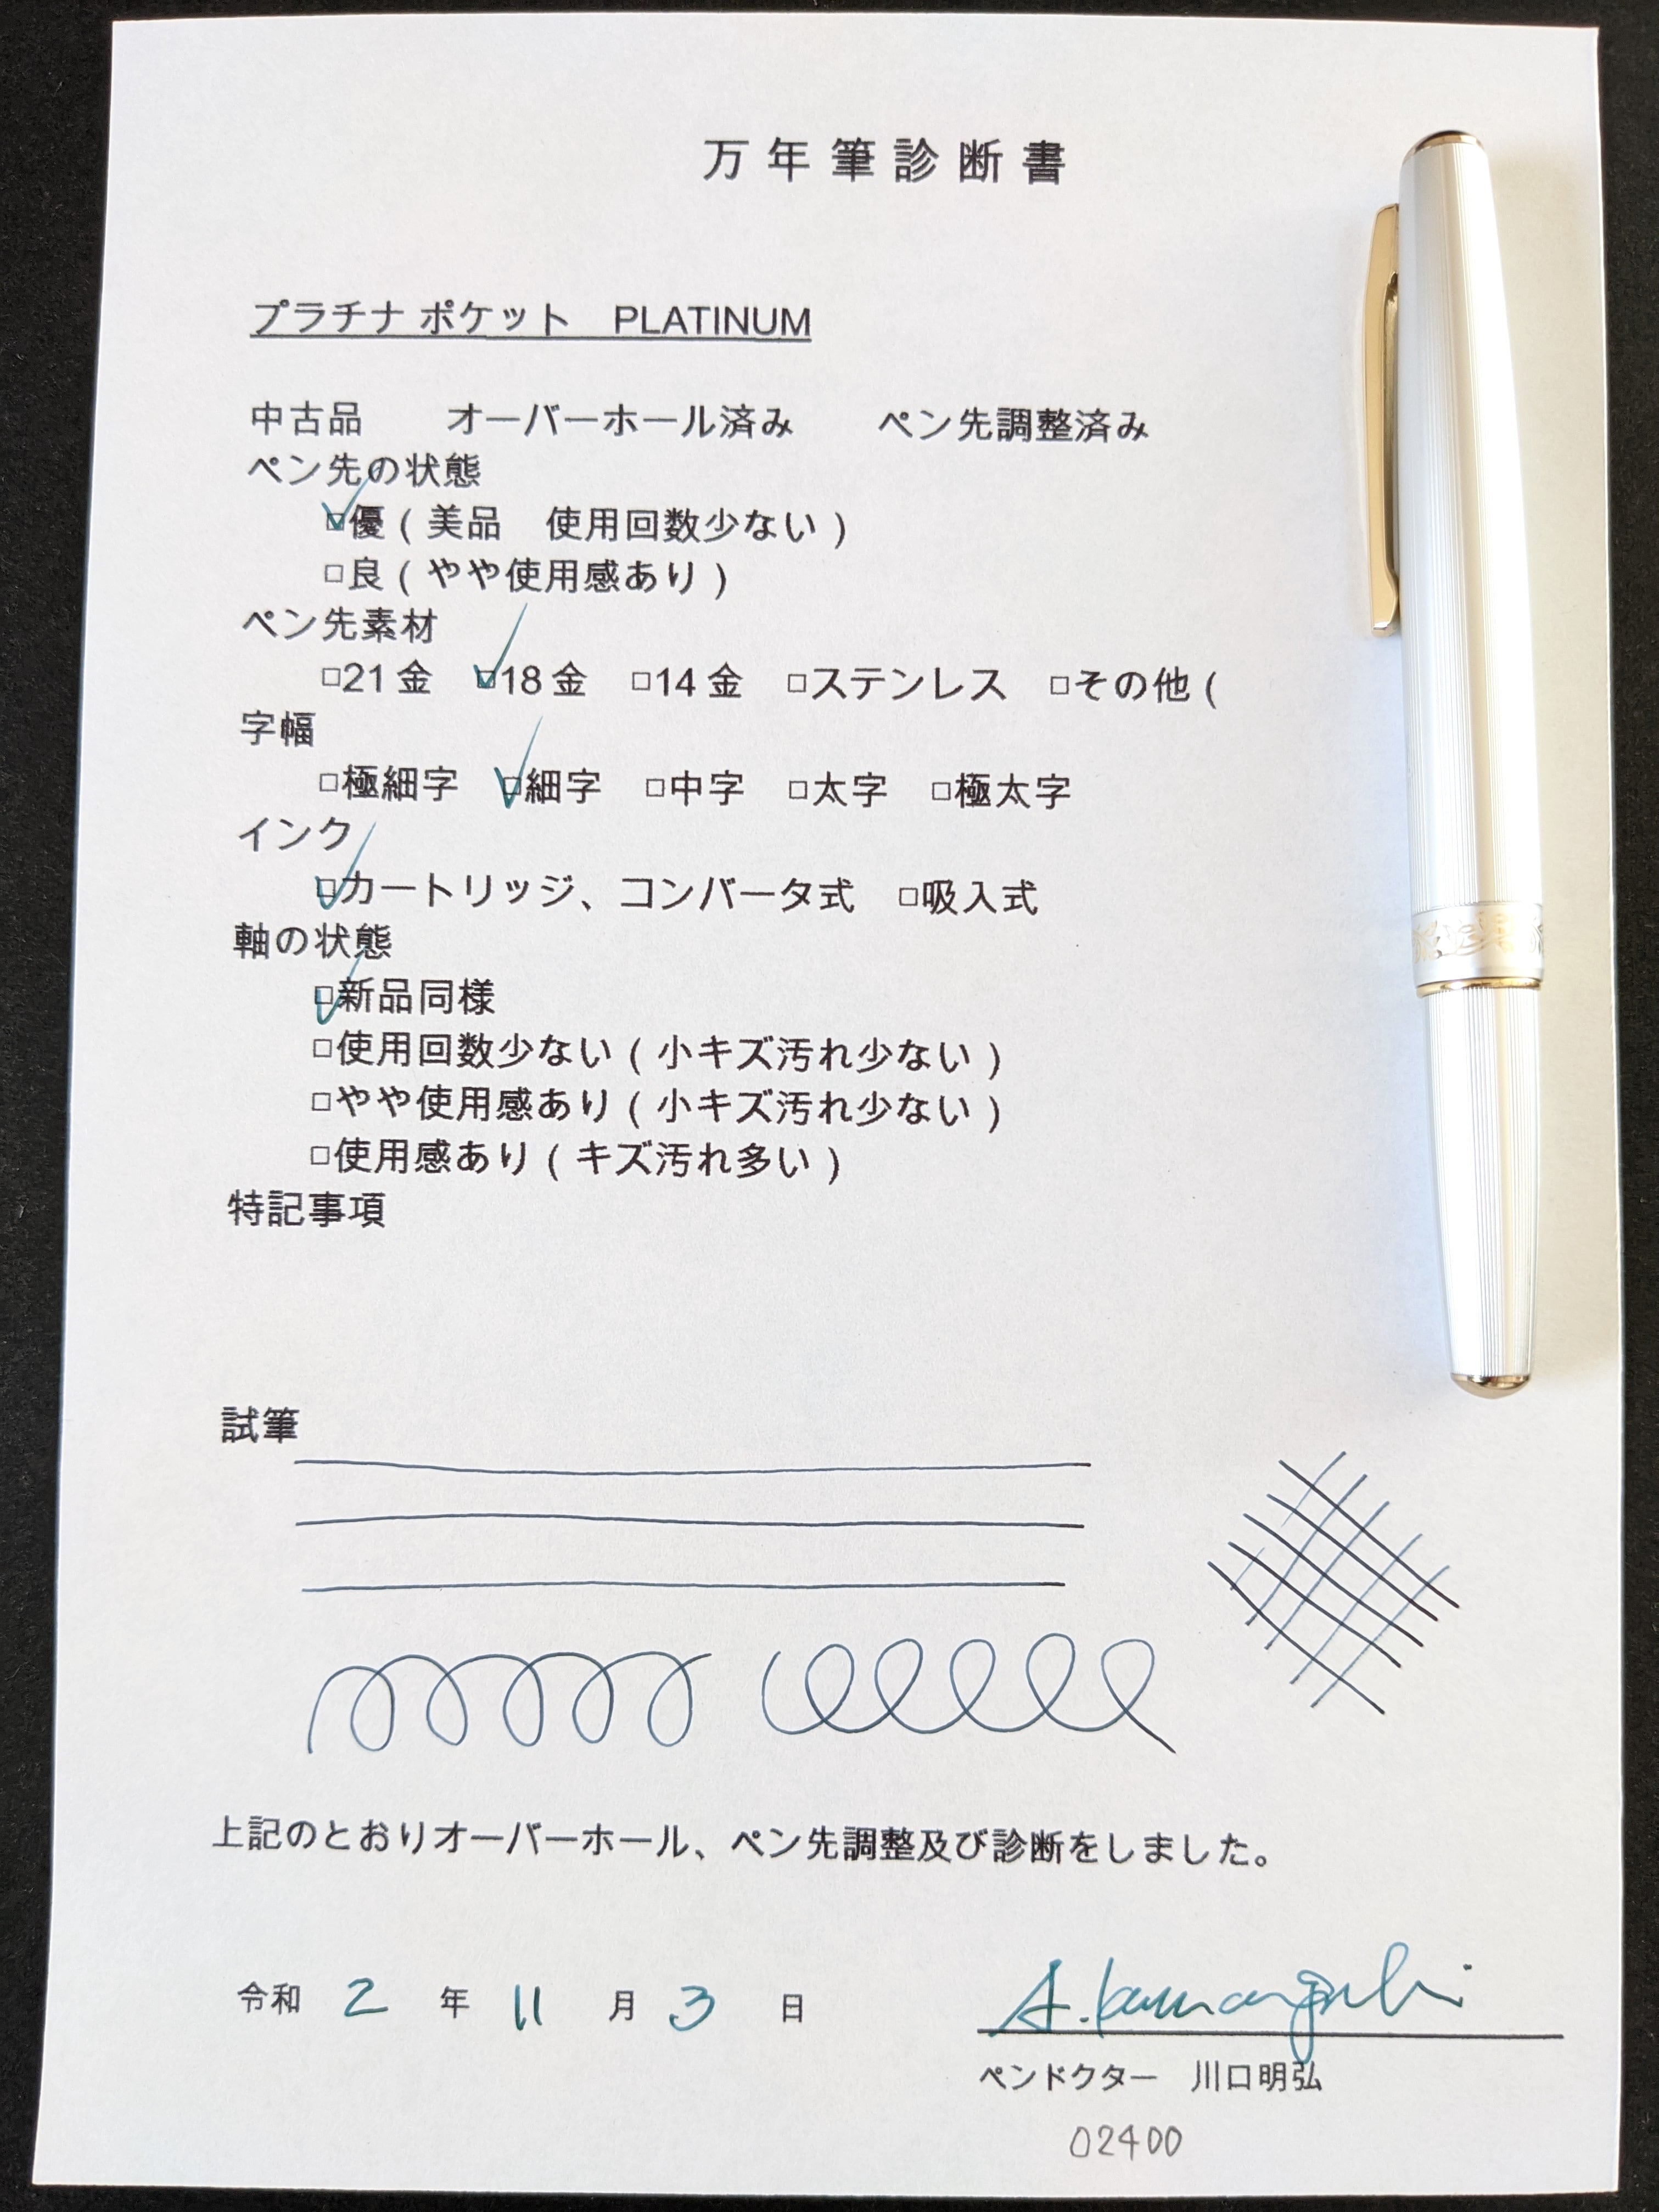 万年筆診断書
プラチナ ポケット　PLATINUM
中古品　　オーバーホール済み　　ペン先調整済み
ペン先の状態
☑優（美品　使用回数少ない）
□良（やや使用感あり）
ペン先素材
□21金　☑18金　□14金　□ステンレス　□その他（
字幅
□極細字　☑細字　□中字　□太字　□極太字
インク
☑カートリッジ、コンバータ式　□吸入式
軸の状態
☑新品同様
□使用回数少ない（小キズ汚れ少ない）
□やや使用感あり（小キズ汚れ少ない）
□使用感あり（キズ汚れ多い）
特記事項
試筆
上記のとおりオーバーホール、ペン先調整及び診断をしました。
令和 2 年 11 月 3 日
A. Kawaguchi
ペンドクター　川口明弘
02400